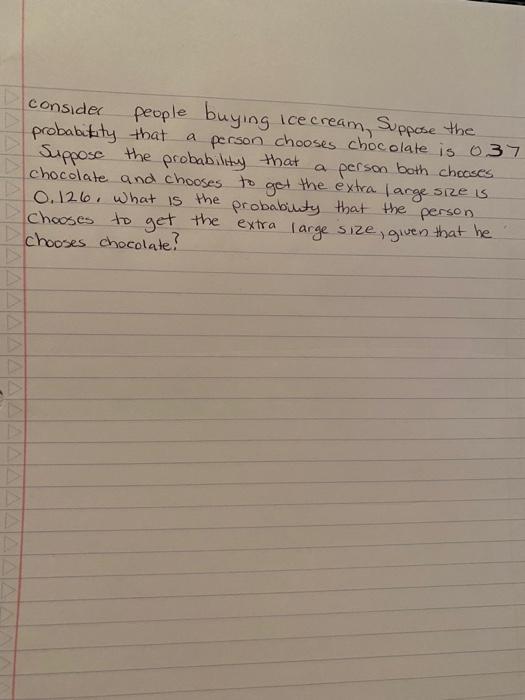 consider people buying icecream, Suppose the
probability that a person chooses chocolate is 0.37
Suppose the probability that a person both chooses
chocolate and chooses to get the extra large size is
0.126. What is the probability that the person
Chooses to get the extra large size, given that he
chooses chocolate?